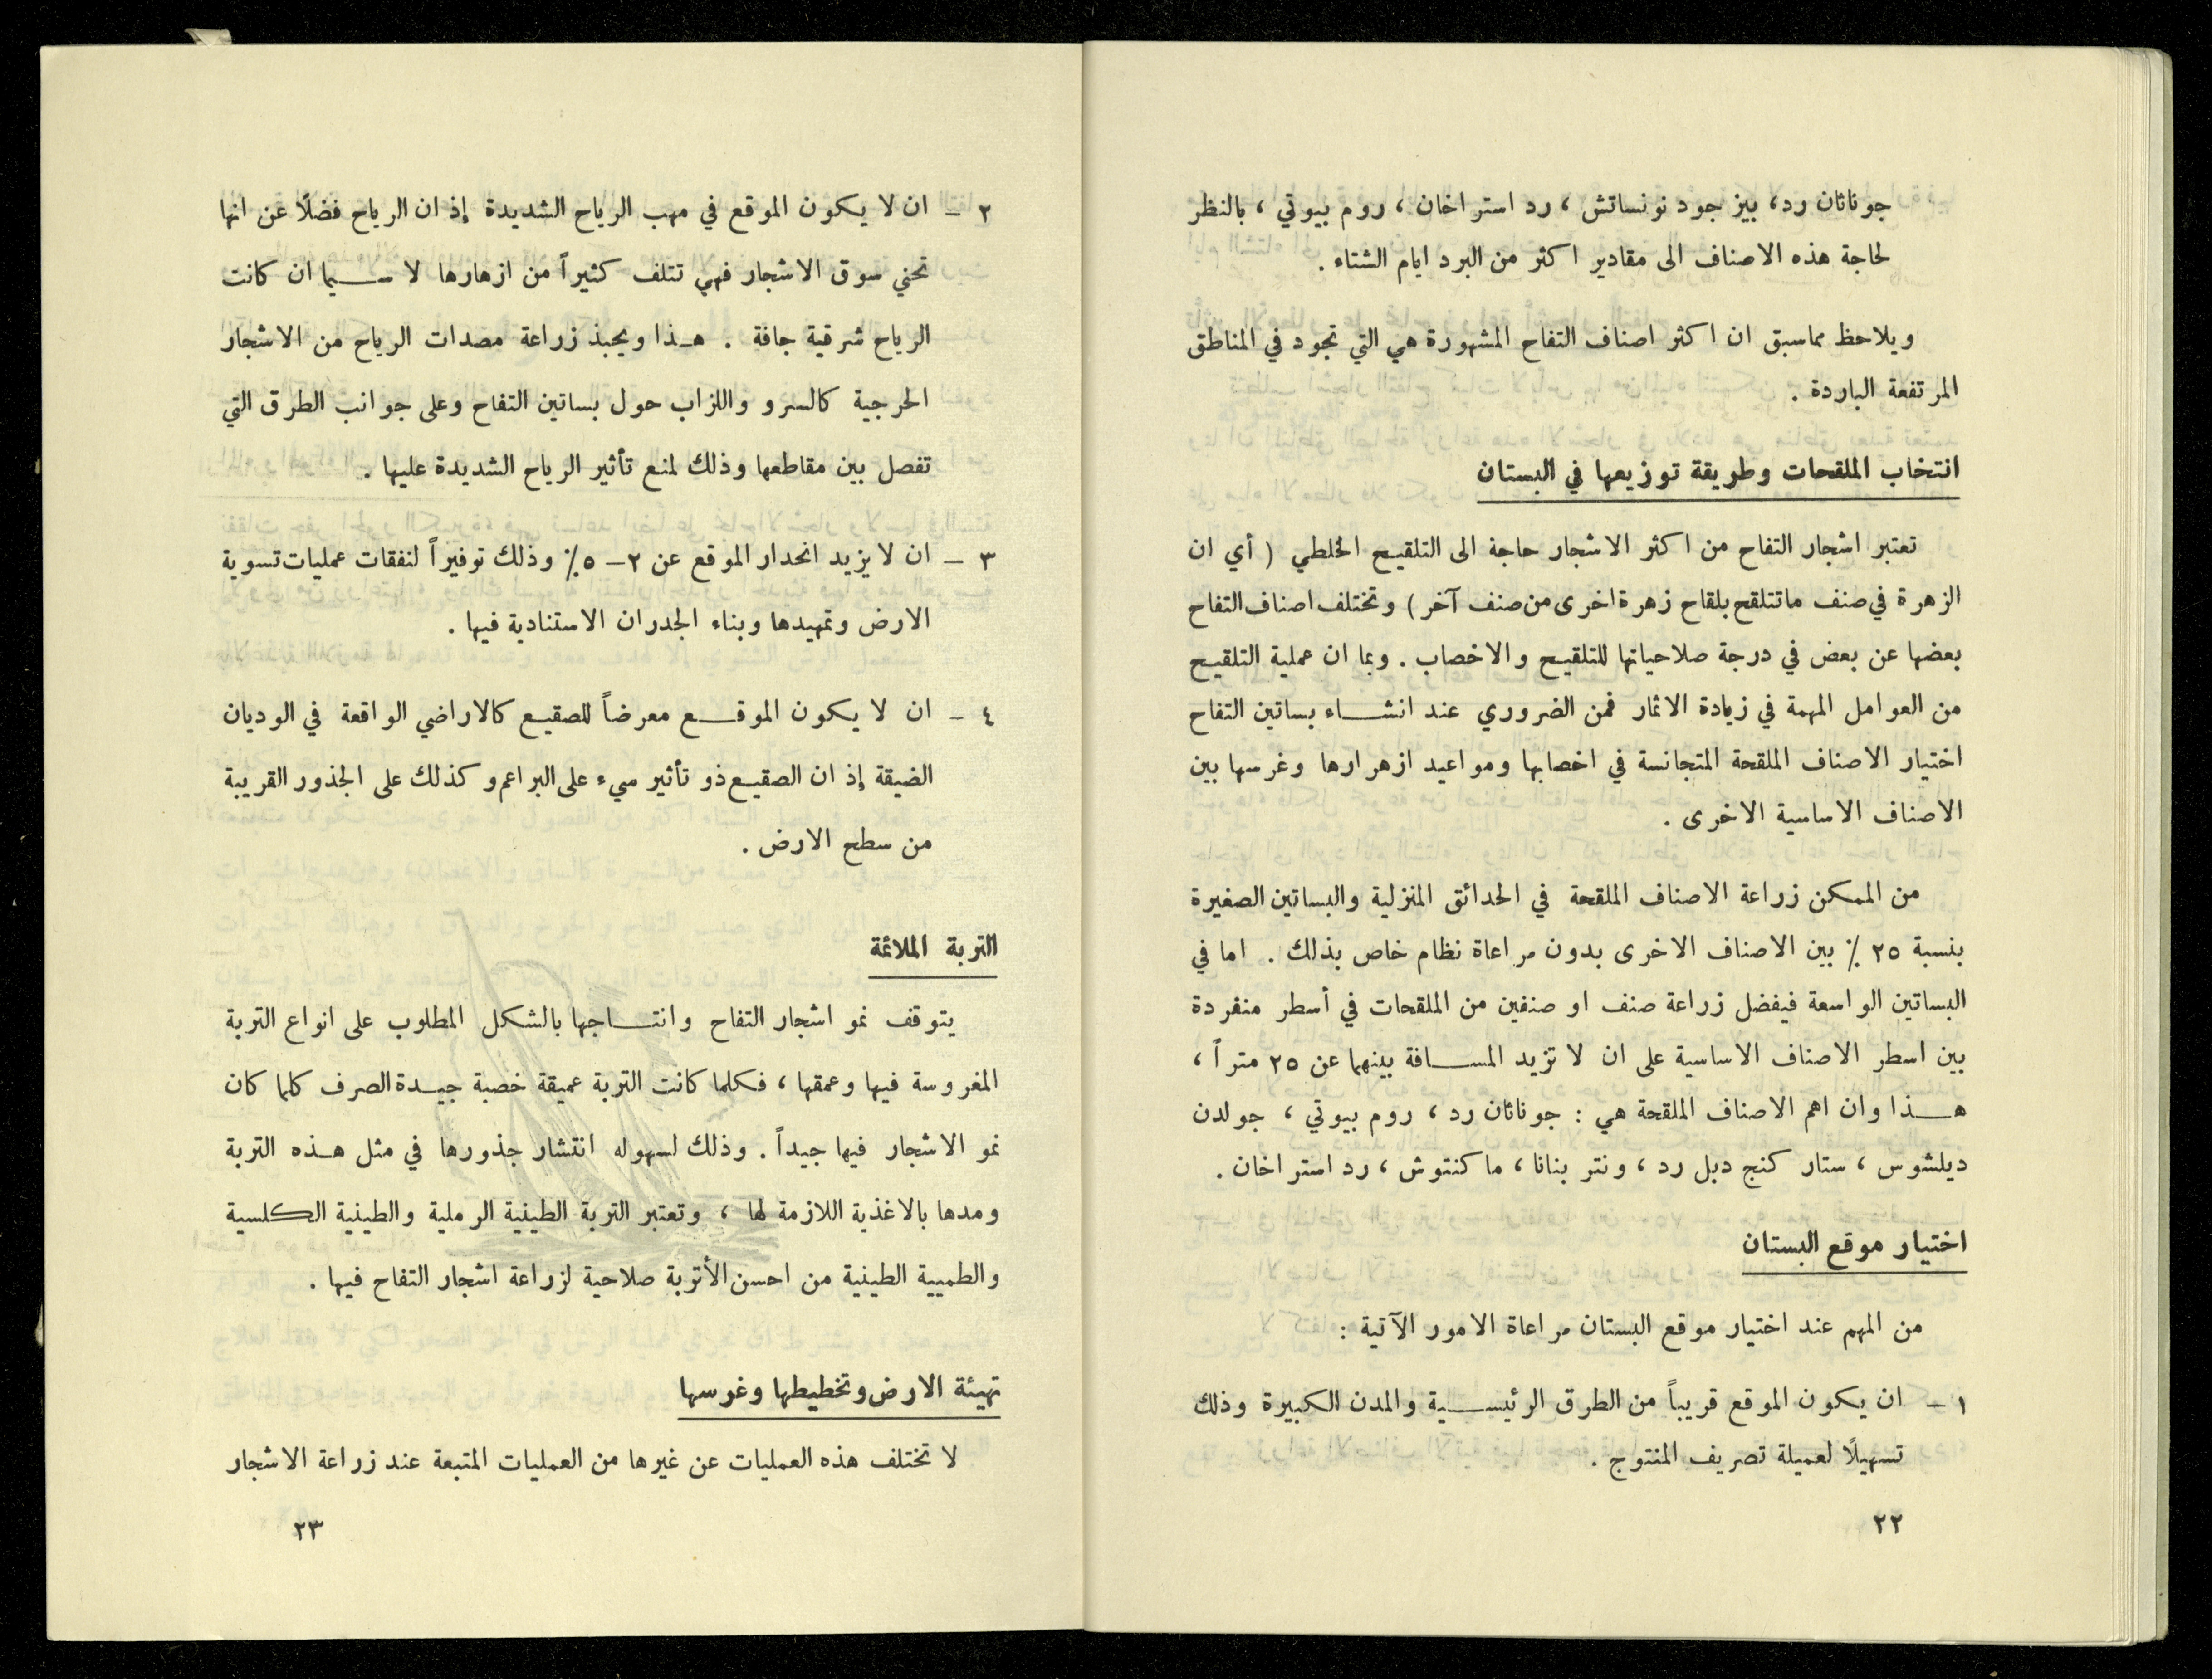 جوناثان رد، بيز جود نونساتش ، رد استراخان ، روم بيوتي ، بالنظر
لحاجة هذه الاصناف الى مقادير اكثر من البرد ايام الشتاء .
ويلاحظ مماسبق ان اكثر اصناف التفاح المشهورة هي التي تجود في المناطق
المرتفعة الباردة .
انتخاب الملقحات وطريقة توزيعها في البستان
تعتبر اشجار التفاح من اكثر الاشجار حاجة الى التلقيح الخلطي ( أي ان
الزهرة في صنف ماتتلقح بلقاح زهرة اخرى من صنف آخر ) وتختلف اصناف التفاح
بعضها عن بعض في درجة صلاحياتها للتلقيح والاخصاب . وبما ان عملية التلقيح
من العوامل المهمة في زيادة الاثمار فمن الضروري عند انشاء بساتين التفاح
اختيار الاصناف الملقحة المتجانسة في اخصابها ومواعيد ازهرارها وغرسها بين
الاصناف الاساسية الاخرى .
من الممكن زراعة الاصناف الملقحة في الحدائق المنزلية والبساتين الصغيرة
بنسبة ٢٥ ٪ بين الاصناف الاخرى بدون مراعاة نظام خاص بذلك . اما في
البساتين الواسعة فيفضل زراعة صنف او صنفين من الملقحات في أسطر منفردة
بين اسطر الاصناف الاساسية على ان لا تزيد المسافة بينهما عن ٢٥ متراً ،
هذا وان اهم الاصناف الملقحة هي : جوناثان رد ، روم بيوتي ، جولدن
ديلشوس ، ستار كنج دبل رد ، ونتر بنانا ، ماكنتوش ، رد استراخان .
اختيار موقع البستان
من المهم عند اختيار موقع البستان مراعاة الامور الآتية :
١ - ان يكون الموقع قريباً من الطرق الرئيسية والمدن الكبيرة وذلك
تسهيلًا لعميلة تصريف المنتوج .
٢٢
٢ - ان لا يكون الموقع في مهب الرياح الشديدة إذ ان الرياح فضلًا عن انها
تحني سوق الاشجار فهي تتلف كثيراً من ازهارها لا سيما ان كانت
الرياح شرقية جافة . هذا ويحبذ زراعة مصدات الرياح من الاشجار
الحرجية كالسرو واللزاب حول بساتين التفاح وعلى جوانب الطرق التي
تفصل بين مقاطعها وذلك لمنع تأثير الرياح الشديدة عليها .
٣ - ان لا يزيد انحدار الموقع عن ٢ - ٥٪ وذلك توفيراً لنفقات عمليات تسوية
الارض وتمهيدها وبناء الجدران الاستنادية فيها .
٤ - ان لا يكون الموقع معرضاً للصقيع كالاراضي الواقعة في الوديان
الضيقة إذ ان الصقيع ذو تأثير سيء على البراعم وكذلك على الجذور القريبة
من سطح الارض .
التربة الملائمة
يتوقف نمو اشجار التفاح وانتاجها بالشكل المطلوب على انواع التربة
المغروسة فيها وعمقها ، فكلما كانت التربة عميقة خصبة جيدة الصرف كلما كان
نمو الاشجار فيها جيداً . وذلك لسهوله انتشار جذورها في مثل هذه التربة
ومدها بالاغذية اللازمة لها ، وتعتبر التربة الطينية الرملية والطينية الكلسية
والطميية الطينية من احسن الأتربة صلاحية لزراعة اشجار التفاح فيها .
تهيئة الارض وتخطيطها وغرسها
لا تختلف هذه العمليات عن غيرها من العمليات المتبعة عند زراعة الاشجار
٢٣